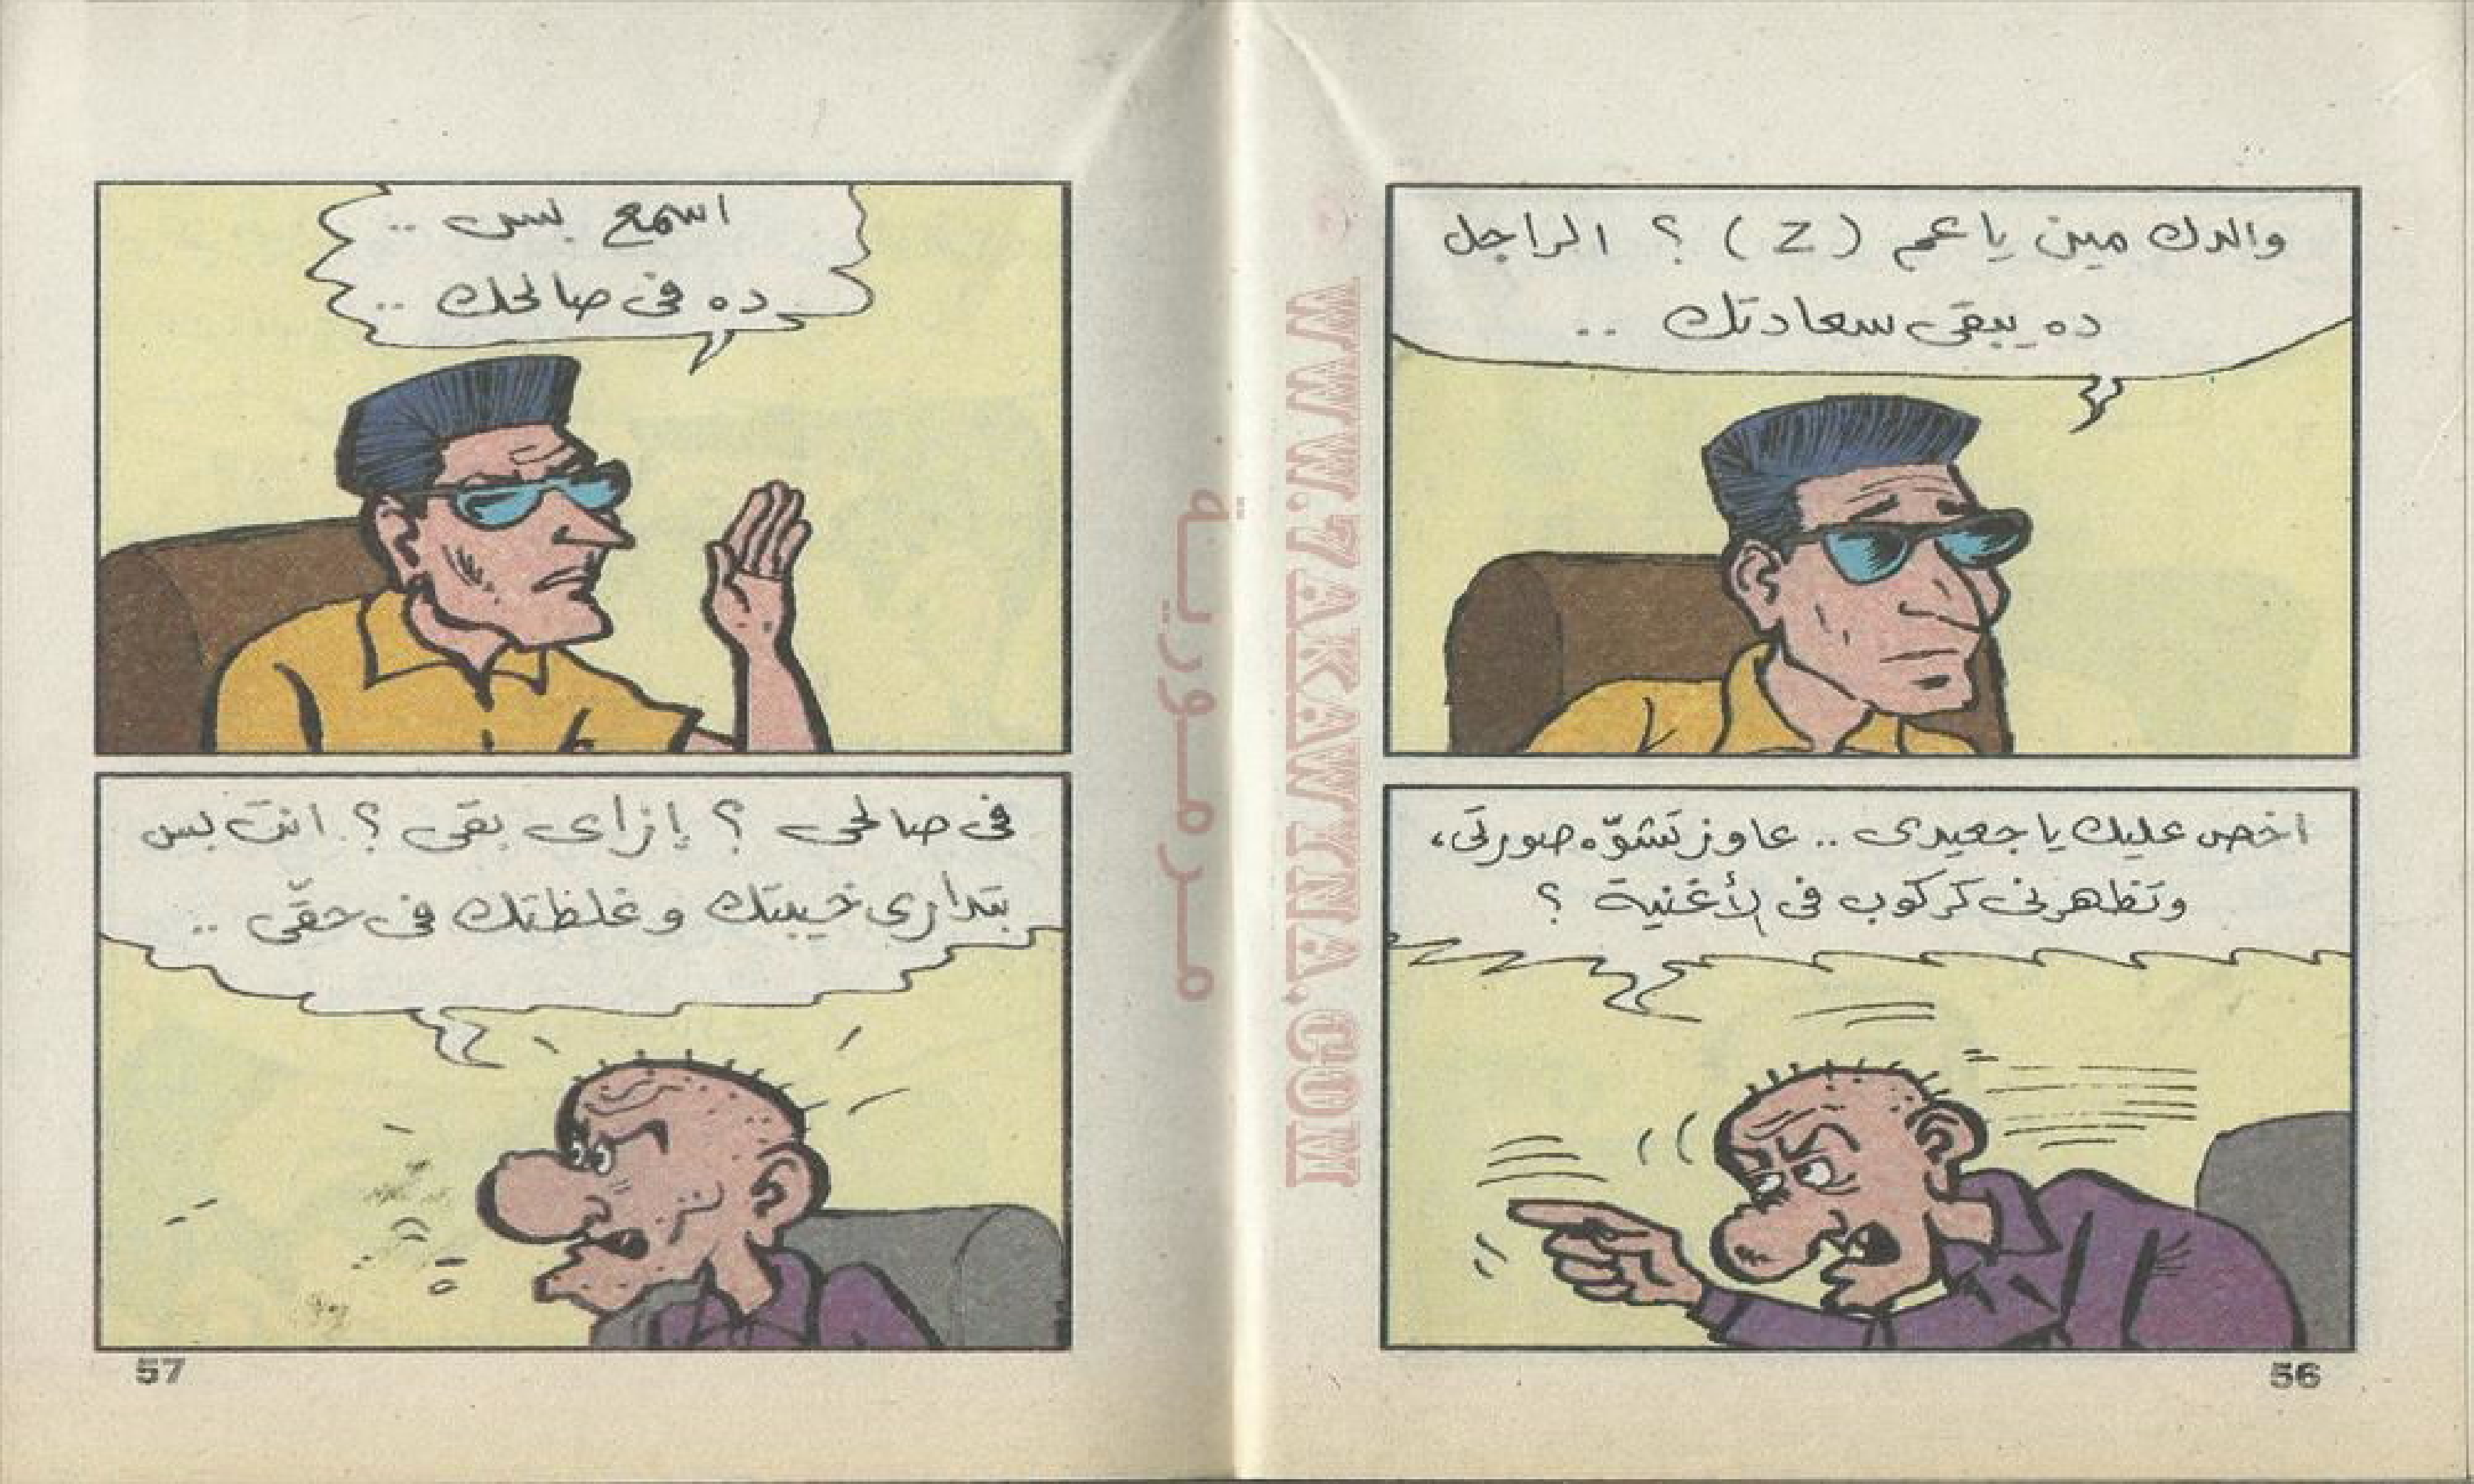 والدك مين ياعم (Z) ؟ الراجل
ده يبقى سعادتك ..
اخص عليك يا جعيدى .. عاوز تشوّه صورتى،
وتظهرنى كركوب فى الأغنية ؟
56
اسمع بس ..
ده فى صالحك ..
فى صالحى ؟ إزاى بقى ؟ انت بس
بتدارى خيبتك وغلظتك فى حقّى ..
57
مرمورية
WWW.7AKAWINA.COM